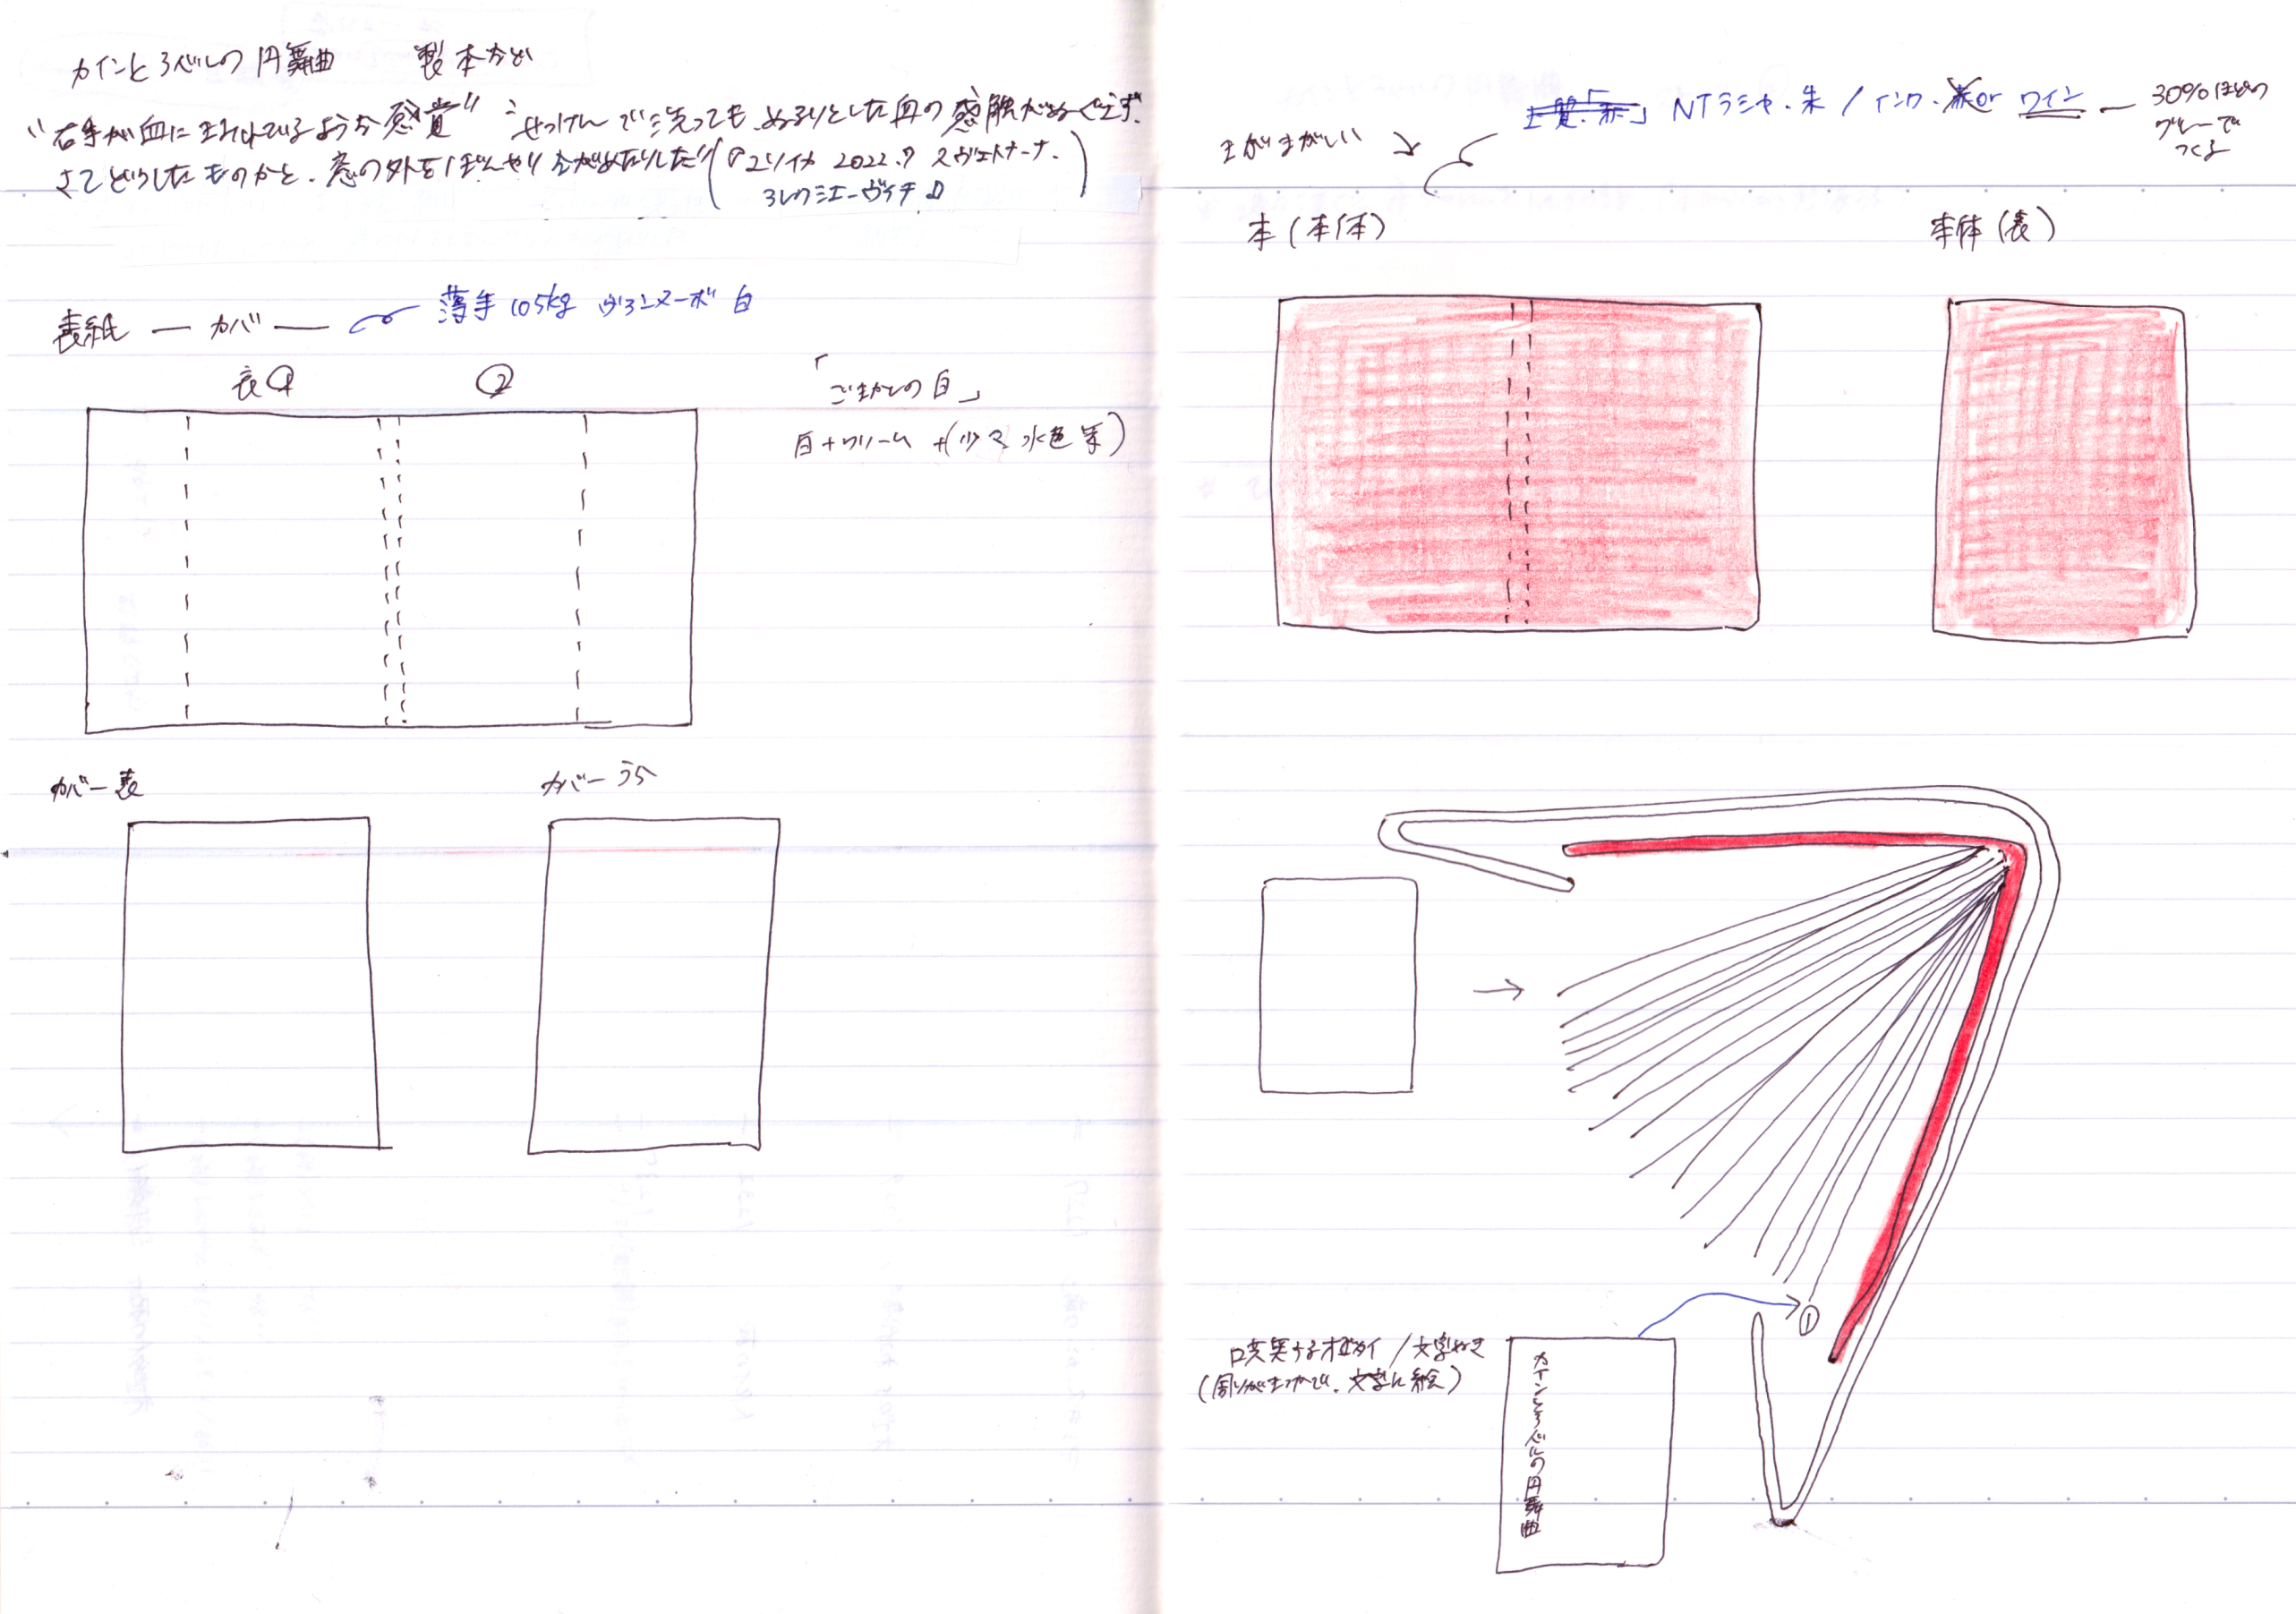 カインとアベルの円舞曲 製本など
“右手が血にまみれているような感覚” せっけんで洗っても、ぬるりとした血の感触がぬぐえず、
さてどうしたものかと、窓の外をぼんやりながめたりした
(『ユリイカ 2022.7 スヴェトラーナ・
アレクシエーヴィチ』)
表紙 — カバー —
薄手 105kg ヴァンヌーボ 白
表① ②
「ごまかしの白」
白+クリーム+(少々水色系)
カバー表 カバーうら
まがまがしい
NTラシャ・朱 / インク・赤or ワイン — 30%ほどの
グレーで
つくる
本(本体) 本体(表)
①
口実するオビタイ/文字ぬき
(周りがまっかで、文字に絵)
カインとアベルの円舞曲